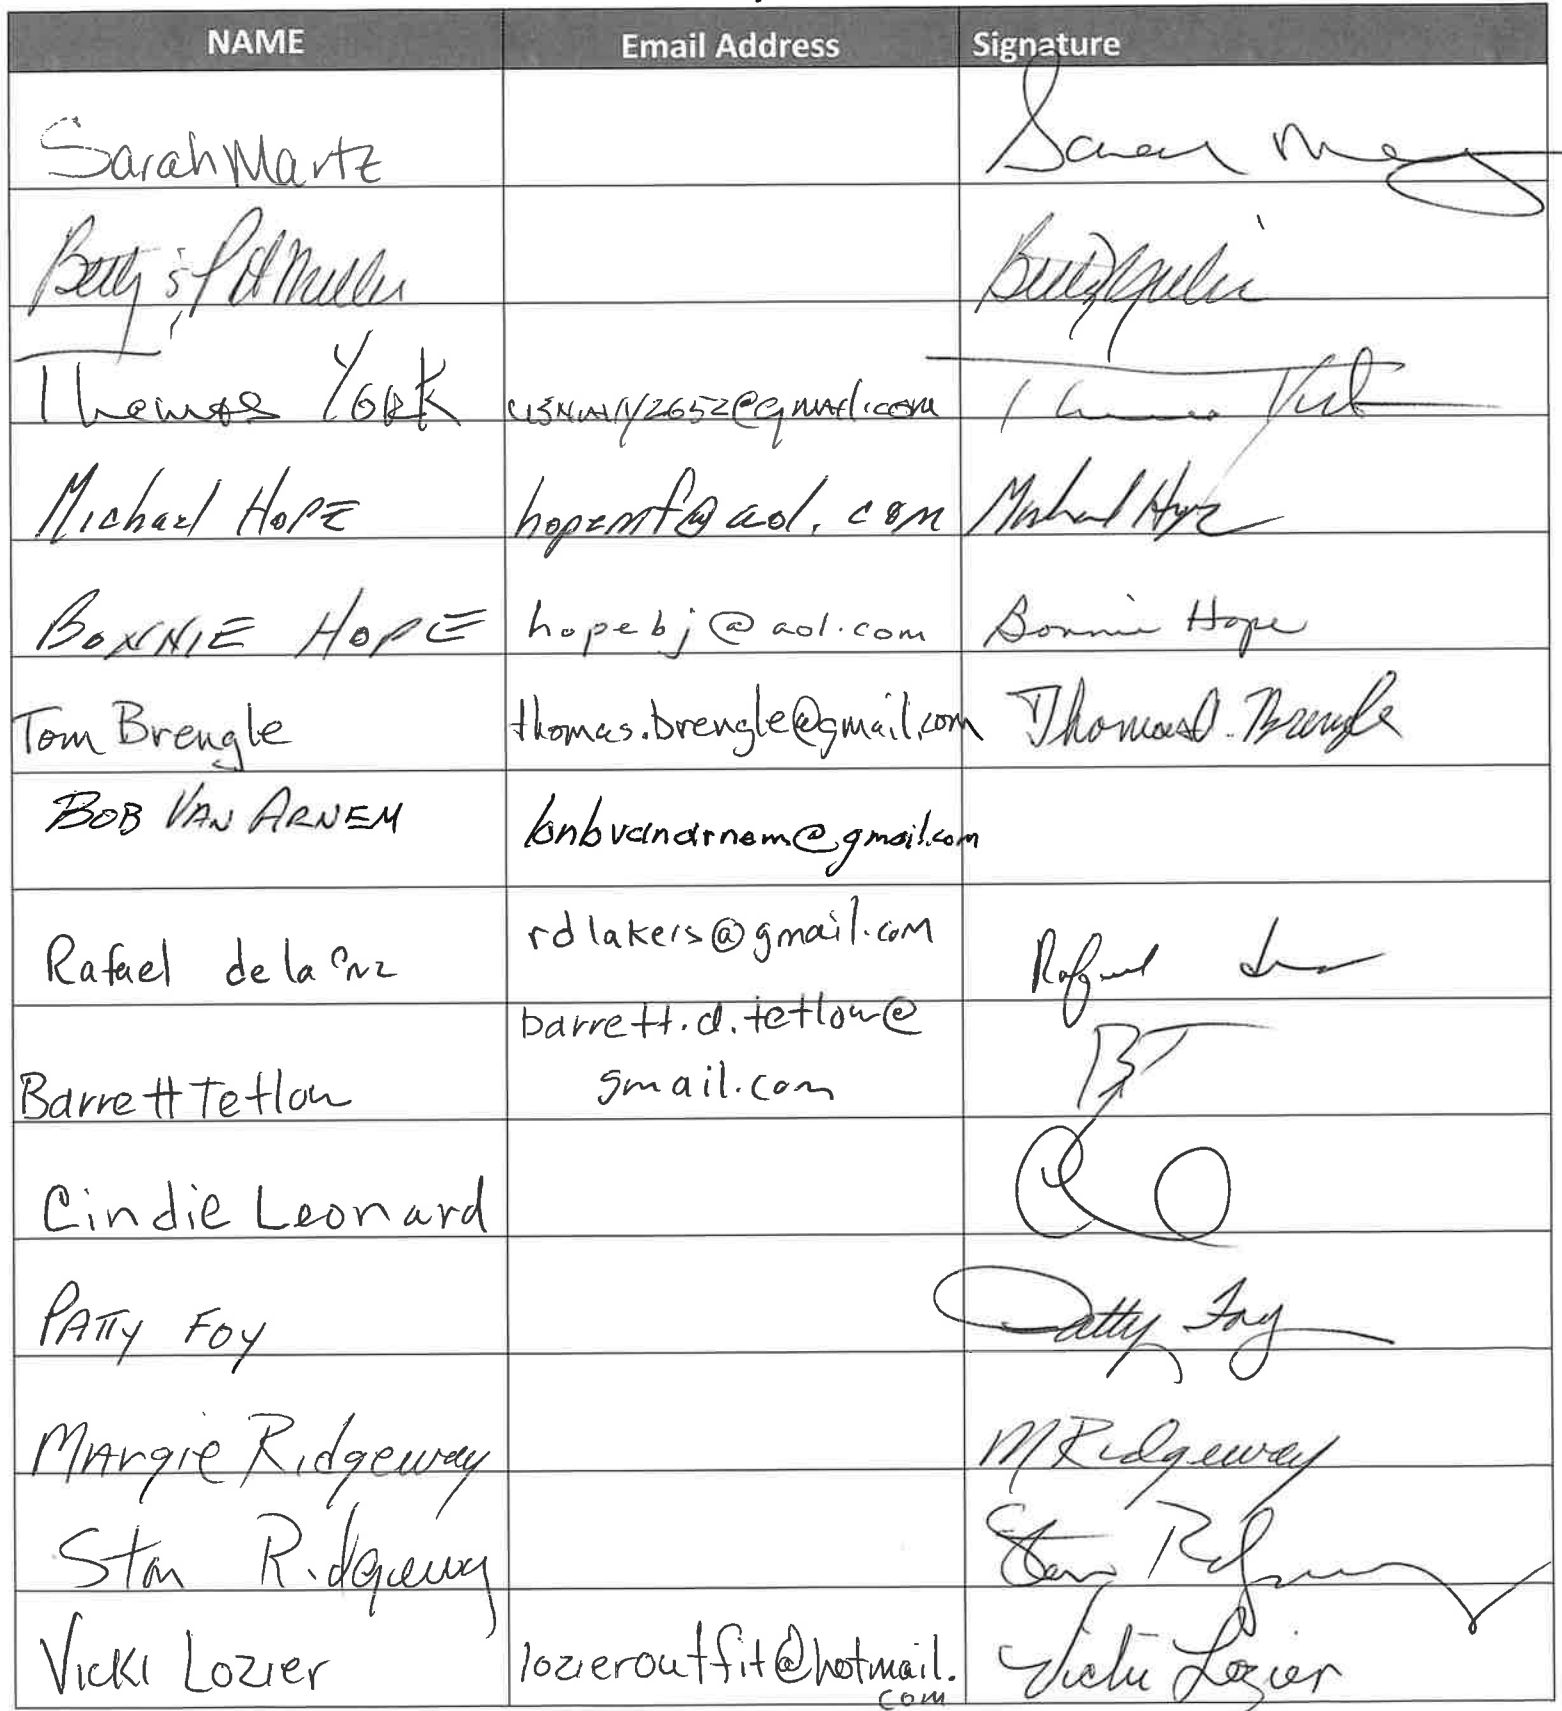 NAME Email Address Signature
Sarah Martz
Betty Miller Betty Miller
Thomas York @gmail.com Thomas York
Michael HOPE hopemf@aol.com Michael Hope
BONNIE HOPE hopebj@aol.com Bonnie Hope
Tom Brengle thomas.brengle@gmail.com Thomas D. Brengle
BOB VAN ARNEM bnbvanarnem@gmail.com
rdlakers@gmail.com
Rafael de la Cruz Rafael
barrett.d.tetlow@
gmail.com
Barrett Tetlow BT
Cindie Leonard
PATTY FOY Patty Foy
Margie Ridgeway M Ridgeway
Stan Ridgeway Stan Ridgeway
Vicki Lozier lozieroutfit@hotmail. Vicki Lozier
com